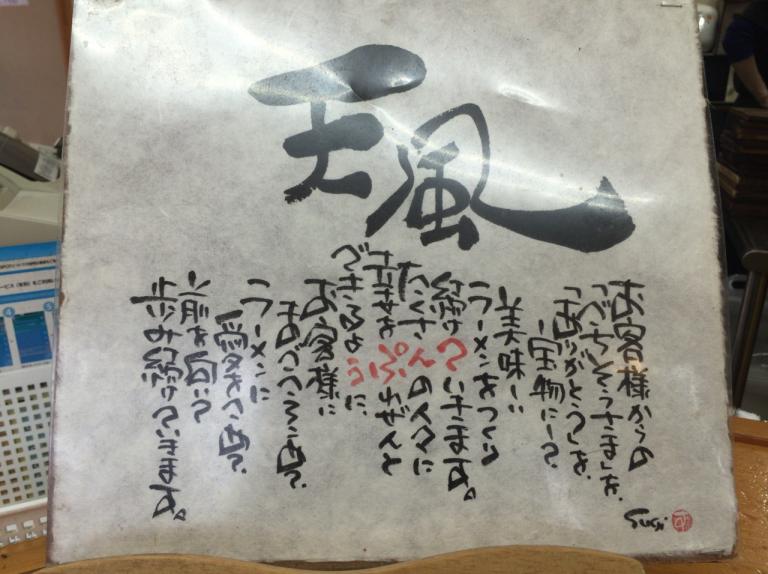 天風
お客様からの
「ごちそうさま」を、
「ありがとう」を、
宝物にして
美味しい
ラーメンをつくり
続けていきます。
たくさんの人々に
幸せをぷれぜんと
できるように
お客様に
まごころを、
ラーメンに
愛ある心を、
前を向いて
歩み続けていきます。